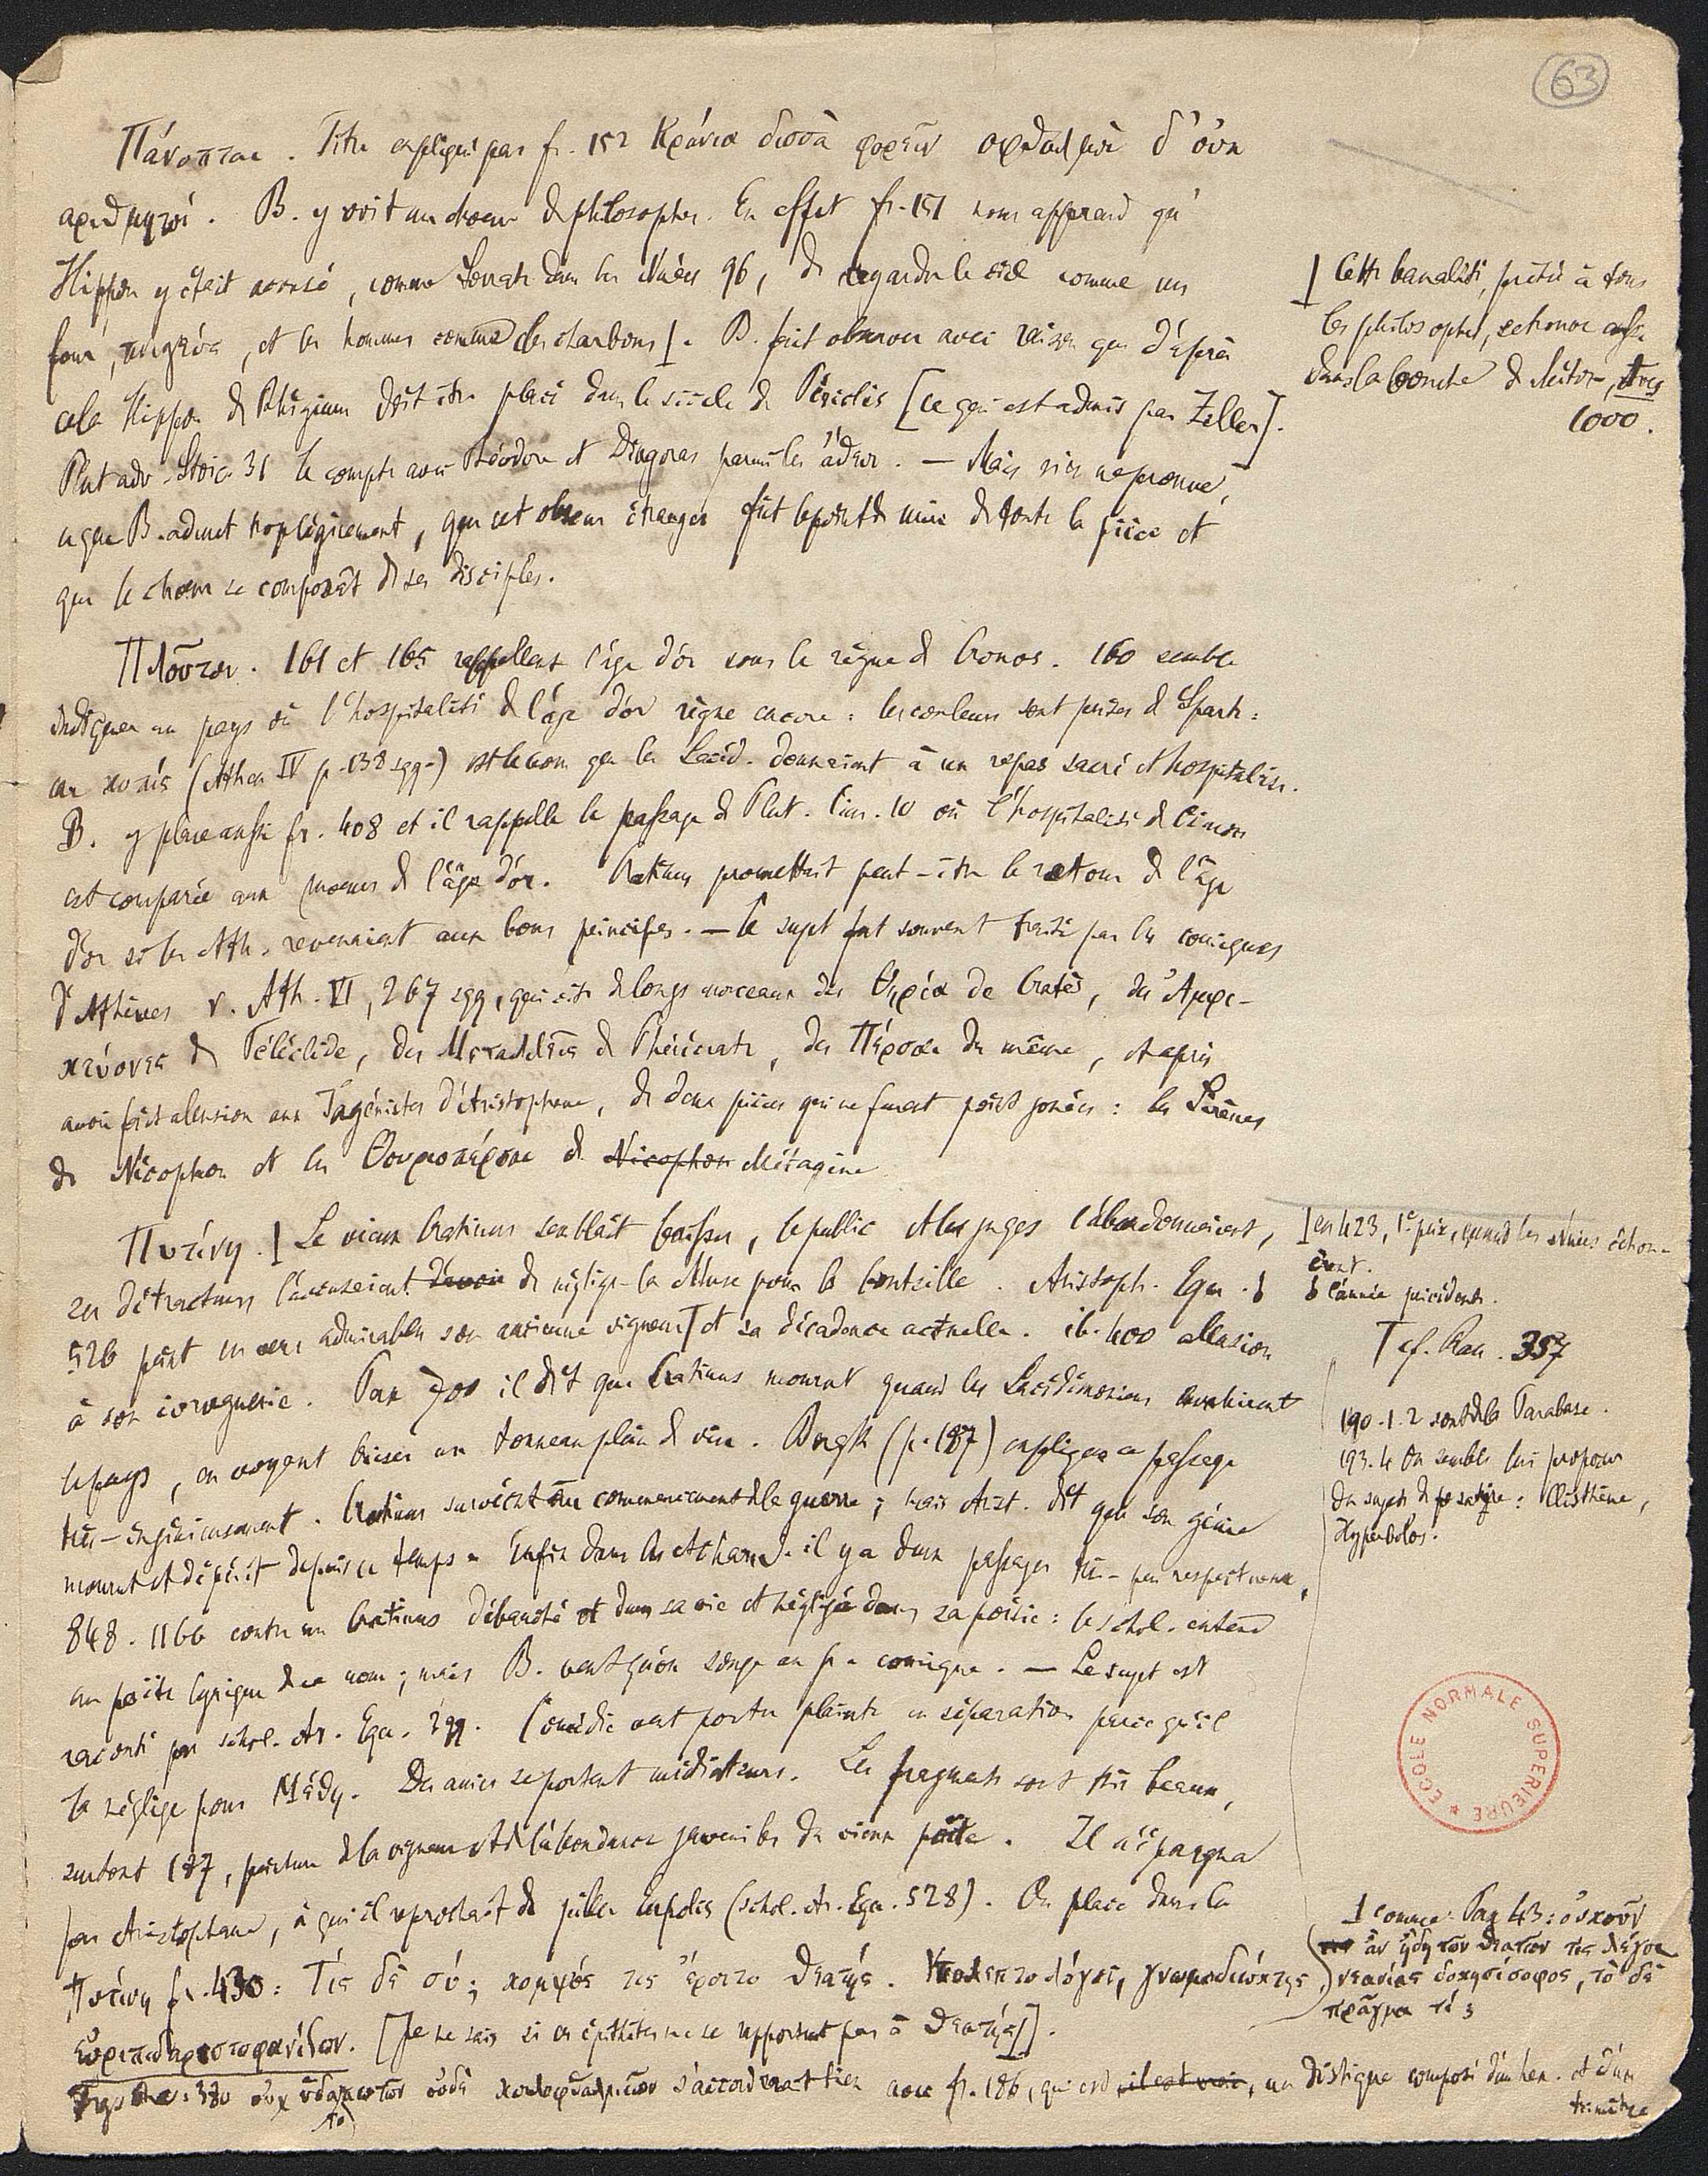 63
Πάνοπται. Titre expliqué par fr. 152 Κράνια δισσὰ φορεῖν ὀφθαλμοὶ δ' οὐκ
ἀριθμητοί. B. y voit un chœur de philosophes. En effet fr. 151 nous apprend qu'
Hippon y était accusé, comme Socrate dans les Nuées 96, de regarder le ciel comme un
four, πνιγεύς, et les hommes comme des charbons. B. fait observer avec raison que d'après
cela Hippon de Rhégium doit être placé dans le siècle de Périclès [ce qui est admis par Zeller].
Plut adv. Stoic. 31 le compte avec Théodore et Diagoras parmi les ἄθεοι. — Mais rien ne prouve,
ce que B. admet trop légèrement, que cet obscur étranger fût le point de mire de toute la pièce et
que le chœur se composât de ses disciples.
Cette banalité, prêtée à tous
les philosophes, se trouve aussi
dans la bouche de Méton, Aves
1000.
Πλοῦτοι. 161 et 165 rappellent l'âge d'or sous le règne de Cronos. 160 semble
indiquer un pays où l'hospitalité de l'âge d'or règne encore : les couleurs sont prises de Sparte :
car κοπίς (Athen IV p. 138 sqq.) est le nom que les Lacéd. donnaient à un repas sacré et hospitalier.
B. y place aussi fr. 408 et il rappelle le passage de Plut. Cim. 10 où l'hospitalité de Cimon
est comparée aux mœurs de l'âge d'or. Cratinus promettait peut-être le retour de l'âge
d'or si les Ath. revenaient aux bons principes. — Ce sujet fut souvent traité par les comiques
d'Athènes v. Ath. VI, 267 sqq, qui cite de longs morceaux des Θηρία de Cratès, des Ἀμφι-
κτύονες de Téléclide, des Μεταλλεῖς de Phérécrate, des Πέρσαι du même, et après
avoir fait allusion aux Tagénistes d'Aristophane, de deux pièces qui ne furent point jouées : les Sirènes
de Nicophon et les Θουριοπέρσαι de Nicophon Métagène
Πυτίνη. Le vieux Cratinus semblait baisser, le public et les juges l'abandonnaient,
ses détracteurs l'accusaient d'avoir de négliger la Muse pour la bouteille. Aristoph. Equ.
526 peint en vers admirables son ancienne vigueur et sa décadence actuelle. ib. 400 allusion
à son ivrognerie. Pax 700 il dit que Cratinus mourut quand les Lacédémoniens envahirent
le pays, en voyant briser un tonneau plein de vin. Bergk (p. 187) explique ce passage
très-ingénieusement. Cratinus survécut au commencement de la guerre ; mais Arist. dit que son génie
mourut et dépérit depuis ce temps. Enfin dans les Acharn. il y a deux passages très-peu respectueux,
848. 1166 contre un Cratinus débauché et dans sa vie et négligé dans sa poésie : le schol. entend
un poète lyrique de ce nom ; mais B. veut qu'on songe au comique. — Le sujet est
raconté par schol. Ar. Equ. 399. Comédie veut porter plainte en séparation parce qu'il
la néglige pour Μέθη. Des amis se portent médiateurs. Les fragments sont très beaux,
surtout 187, peinture de la vigueur et de l'abondance juvéniles du vieux poète. Il n'épargna
pas Aristophane, à qui il reprochait de piller Eupolis (schol. Ar. Equ. 528). On place dans la
Πυτίνη fr. 430 : Τίς δὲ σύ; κομψός τις ἔροιτο θεατής. Ὑπολεπτολόγος, γνωμοδιώκτης,
εὐριπιδαριστοφανίζων. [Je ne sais si ces épithètes ne se rapportent pas à θεατής].
380 οὐχ ὑδαρ τον οὐδὲ s'accorderait bien avec fr. 186, qui est, il est vrai, un distique composé d'un hex. et d'un
trimètre
en 423, 1er prix, quand les Nuées échou-
èrent.
l'année précédente.
cf. Ran. 357
190.1.2 sont de la Parabase.
193.4 On semble lui proposer
des sujets de satyre : Clisthène,
Hyperbolos.
ECOLE NORMALE SUPERIEURE
comme Pax 43 : οὐκοῦν
ἂν ἤδη τῶν θεατῶν τις λέγοι
νεανίας δοκησίσοφος, τὸ δὲ
πρᾶγμα τί;